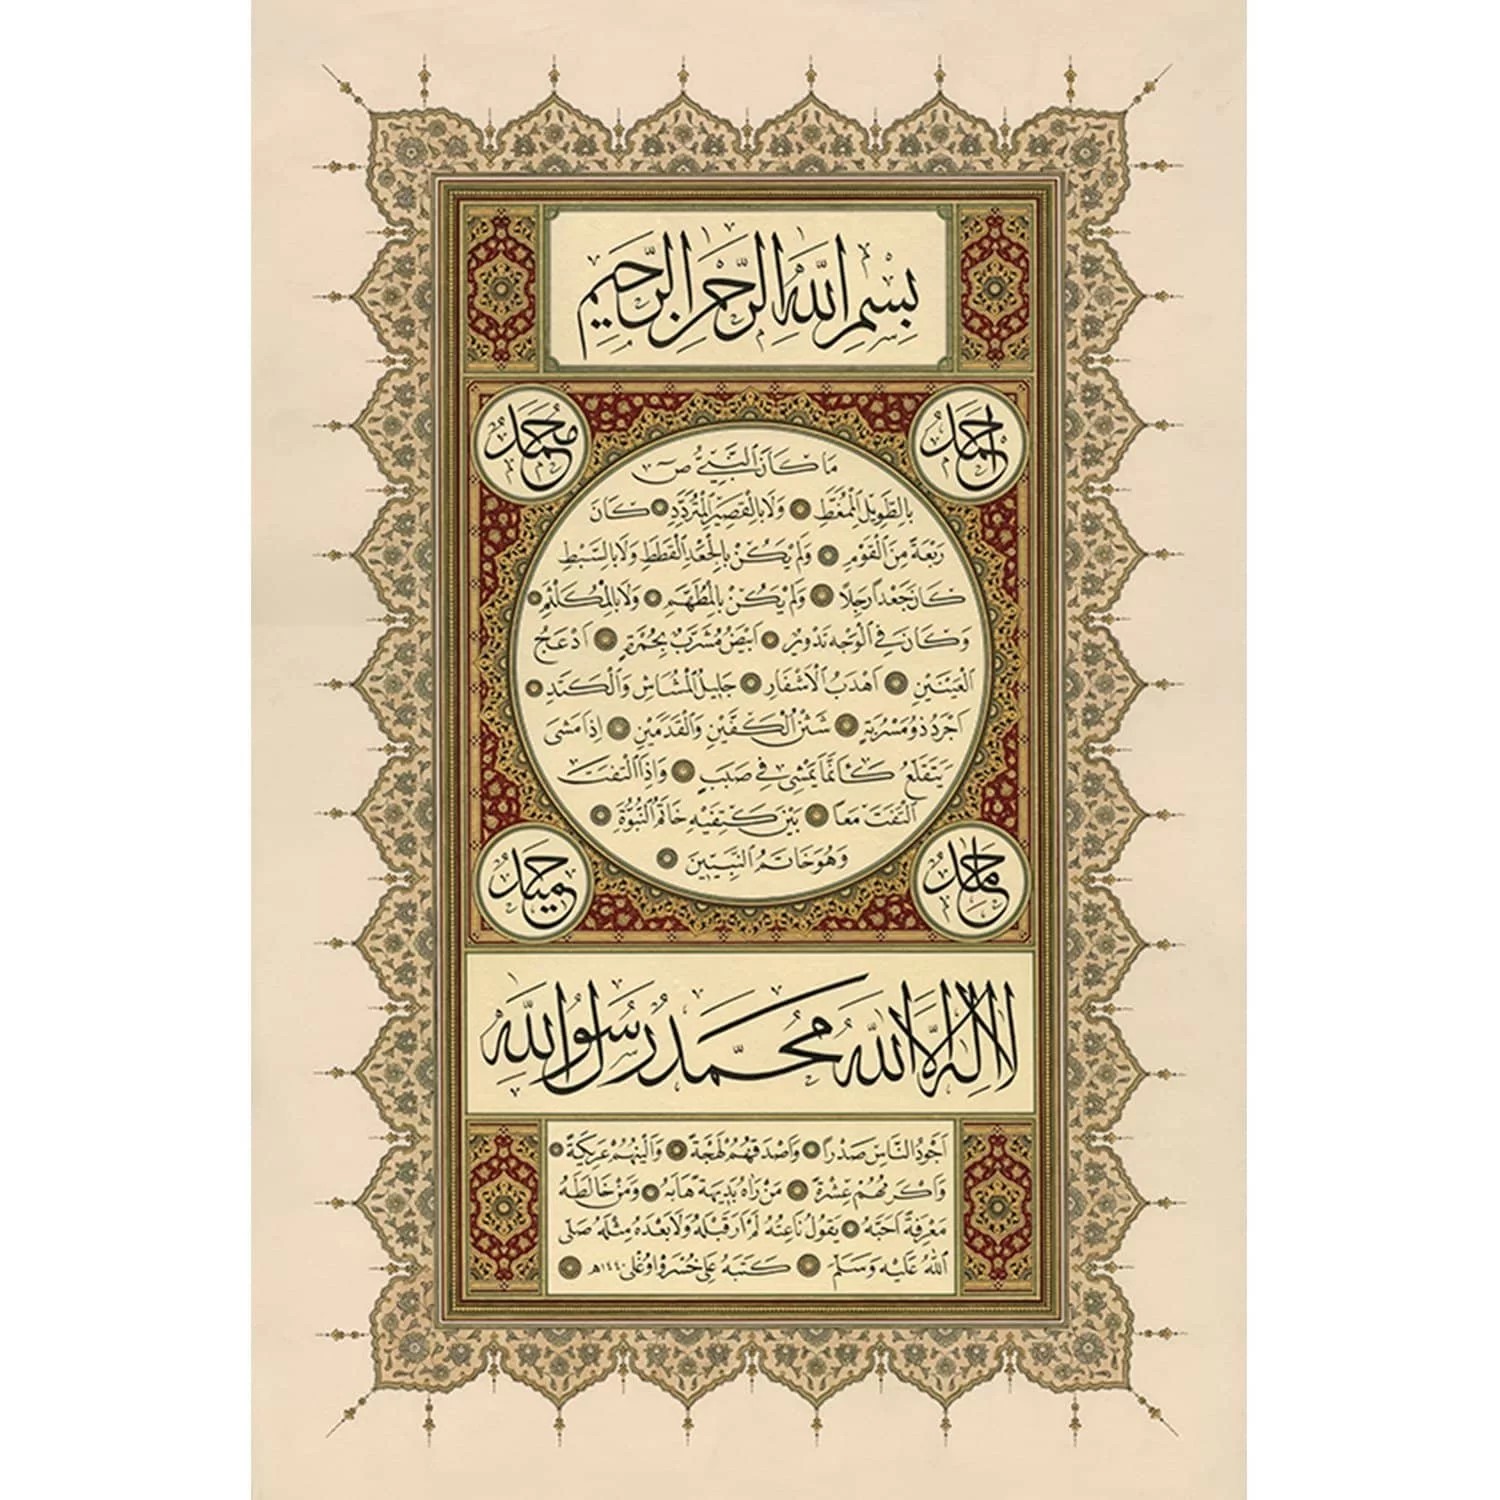 بِسْمِ اللّٰهِ الرَّحْمٰنِ الرَّحِيمِ
اَحْمَدُ
مُحَمَّدٌ
مَا كَانَ النَّبِيُّ ص
بِالطَّوِيلِ الْمُمَغَّطِ وَلَا بِالْقَصِيرِ الْمُتَرَدِّدِ كَانَ
رَبْعَةً مِنَ الْقَوْمِ وَلَمْ يَكُنْ بِالْجَعْدِ الْقَطَطِ وَلَا بِالسَّبِطِ
كَانَ جَعْدًا رَجِلًا وَلَمْ يَكُنْ بِالْمُطَهَّمِ وَلَا بِالْمُكَلْثَمِ
وَكَانَ فِي الْوَجْهِ تَدْوِيرٌ اَبْيَضُ مُشْرَبٌ بِحُمْرَةٍ اَدْعَجُ
الْعَيْنَيْنِ اَهْدَبُ الْاَشْفَارِ جَلِيلُ الْمُشَاشِ وَالْكَتَدِ
اَجْرَدُ ذُو مَسْرُبَةٍ شَثْنُ الْكَفَّيْنِ وَالْقَدَمَيْنِ اِذَا مَشَى
يَتَقَلَّعُ كَاَنَّمَا يَمْشِي فِي صَبَبٍ وَاِذَا الْتَفَتَ
الْتَفَتَ مَعًا بَيْنَ كَتِفَيْهِ خَاتَمُ النُّبُوَّةِ
وَهُوَ خَاتَمُ النَّبِيّينَ
حَامِدٌ
حَمِيدٌ
لَا اِلٰهَ اِلَّا اللّٰهُ مُحَمَّدٌ رَسُولُ اللّٰهِ
اَجْوَدُ النَّاسِ صَدْرًا وَاَصْدَقُهُمْ لَهْجَةً وَاَلْيَنُهُمْ عَرِيكَةً
وَاَكْرَمُهُمْ عِشْرَةً مَنْ رَاٰهُ بَدِيهَةً هَابَهُ وَمَنْ خَالَطَهُ
مَعْرِفَةً اَحَبَّهُ يَقُولُ نَاعِتُهُ لَمْ اَرَ قَبْلَهُ وَلَا بَعْدَهُ مِثْلَهُ صَلَّى
اللّٰهُ عَلَيْهِ وَسَلَّمَ كَتَبَهُ عَلِي خُسْرَوْ اوُغْلِى ١٤٤٠هـ